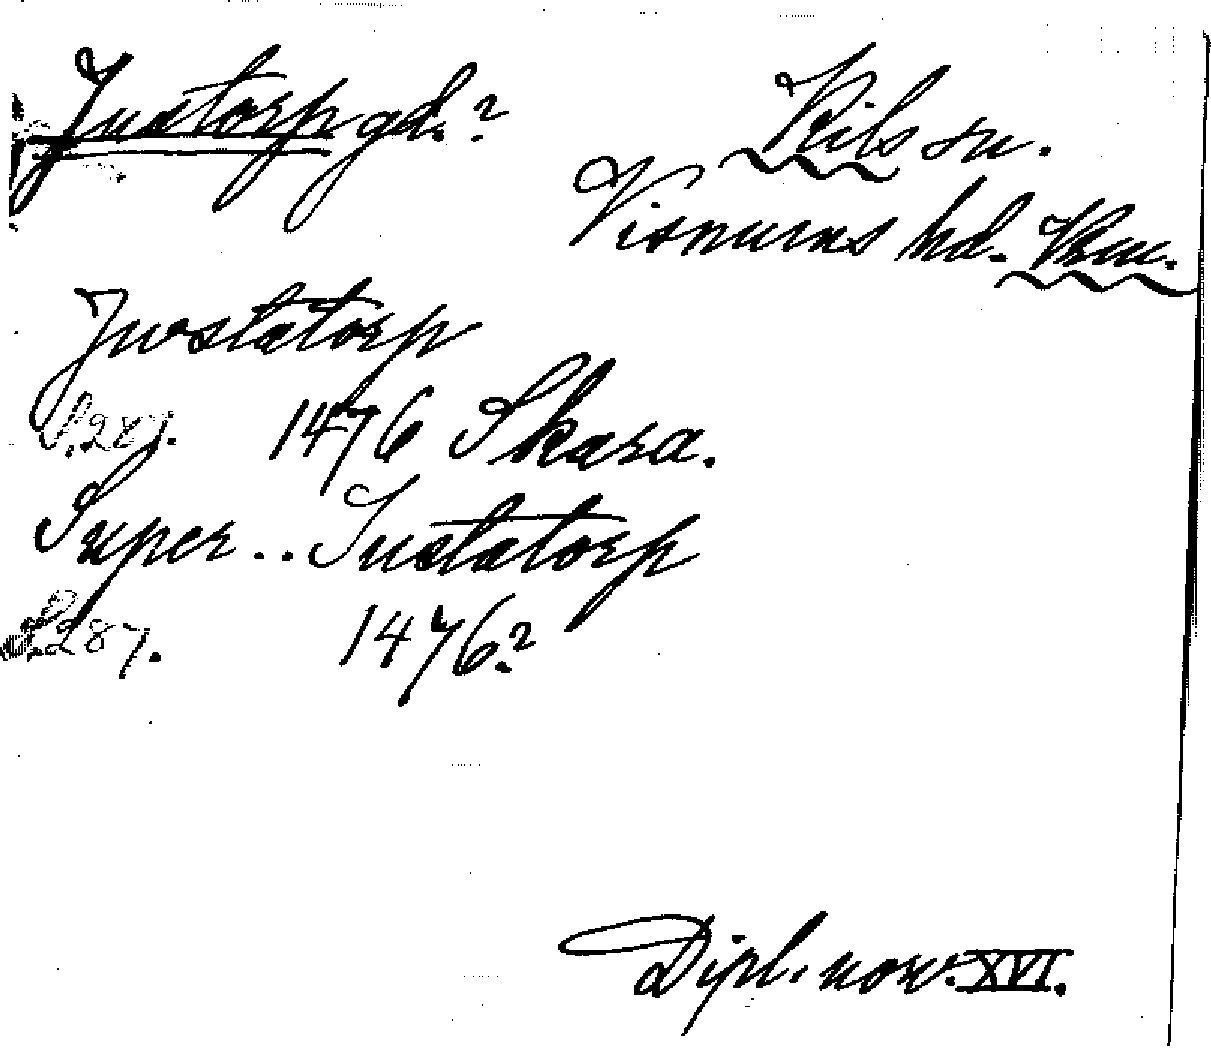 Justorp gd.?
Kils sn.
Visnums hd. Vrm.
Jwstatorp
S. 287. 1476 Skara.
Super .. Iustatorp
S. 287. 1476?
Dipl. norv. XVI.